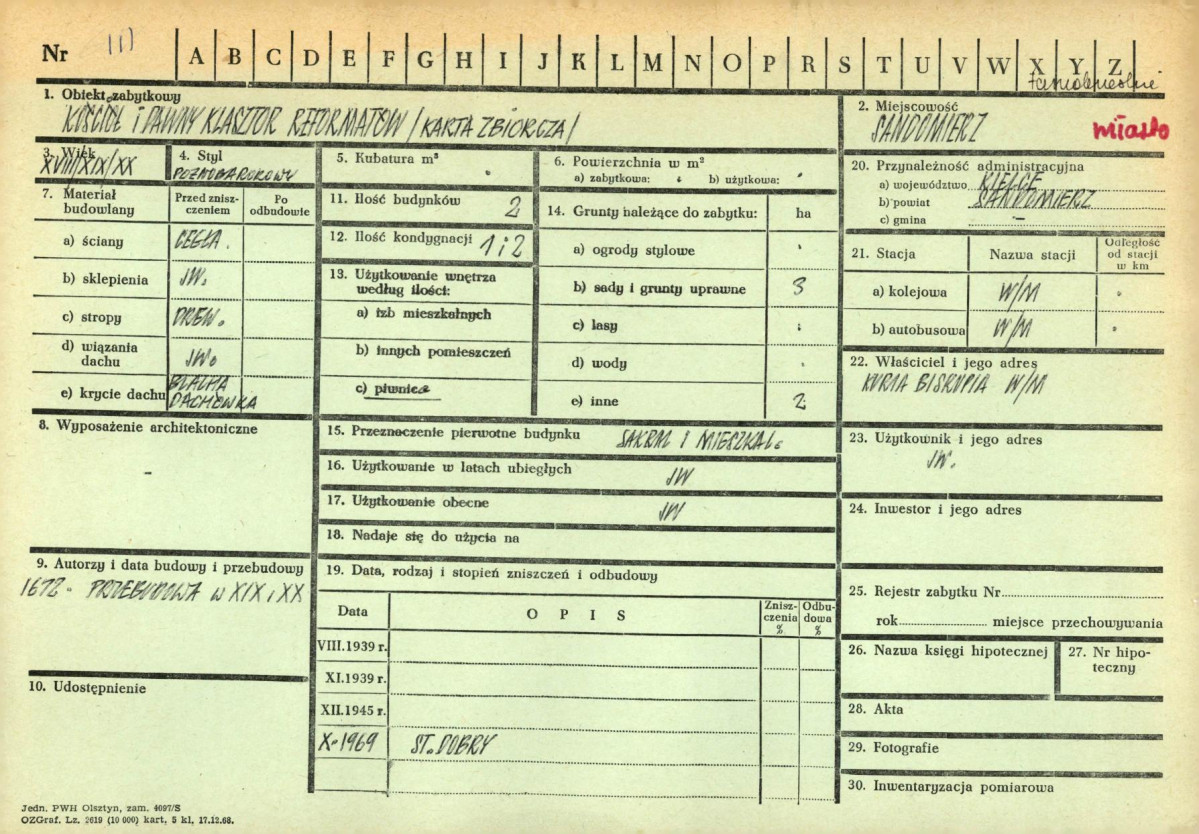 Nr III A B C D E F G H I J K L M N O P R S T U V W X Y Z
1. Obiekt zabytkowy
KOŚCIÓŁ I DAWNY KLASZTOR REFORMATÓW /KARTA ZBIORCZA/
2. Miejscowość
SANDOMIERZ
miasto
3. Wiek
XVIII/XIX/XX
4. Styl
PÓŹNOBAROKOWY
5. Kubatura m³
6. Powierzchnia w m²
a) zabytkowa: b) użytkowa:
20. Przynależność administracyjna
a) województwo KIELCE
b) powiat SANDOMIERZ
c) gmina —
7. Materiał budowlany
Przed zniszczeniem
Po odbudowie
a) ściany CEGŁA.
b) sklepienia JW.
c) stropy DREW.
d) wiązania dachu JW.
e) krycie dachu BLACHA
DACHÓWKA
11. Ilość budynków 2
12. Ilość kondygnacji 1 i 2
13. Użytkowanie wnętrza
według ilości:
a) izb mieszkalnych
b) innych pomieszczeń
c) piwnice
14. Grunty należące do zabytku: ha
a) ogrody stylowe
b) sady i grunty uprawne 3
c) lasy
d) wody
e) inne 2
21. Stacja
Nazwa stacji
Odległość
od stacji
w km
a) kolejowa W/M
b) autobusowa W/M
22. Właściciel i jego adres
KURIA BISKUPIA W/M
8. Wyposażenie architektoniczne
—
15. Przeznaczenie pierwotne budynku SAKRAL I MIESZKAL.
16. Użytkowanie w latach ubiegłych JW
17. Użytkowanie obecne JW
18. Nadaje się do użycia na
23. Użytkownik i jego adres
JW.
24. Inwestor i jego adres
9. Autorzy i data budowy i przebudowy
1672 - PRZEBUDOWA W XIX i XX
10. Udostępnienie
19. Data, rodzaj i stopień zniszczeń i odbudowy
Data
O P I S
Zniszczenia
%
Odbudowa
%
VIII.1939 r.
XI.1939 r.
XII.1945 r.
X-1969 ST. DOBRY
25. Rejestr zabytku Nr
rok miejsce przechowywania
26. Nazwa księgi hipotecznej
27. Nr hipoteczny
28. Akta
29. Fotografie
30. Inwentaryzacja pomiarowa
Jedn. PWH Olsztyn, zam. 4097/S
OZGraf. Lz. 2619 (10 000) kart. 5 kl. 17.12.68.